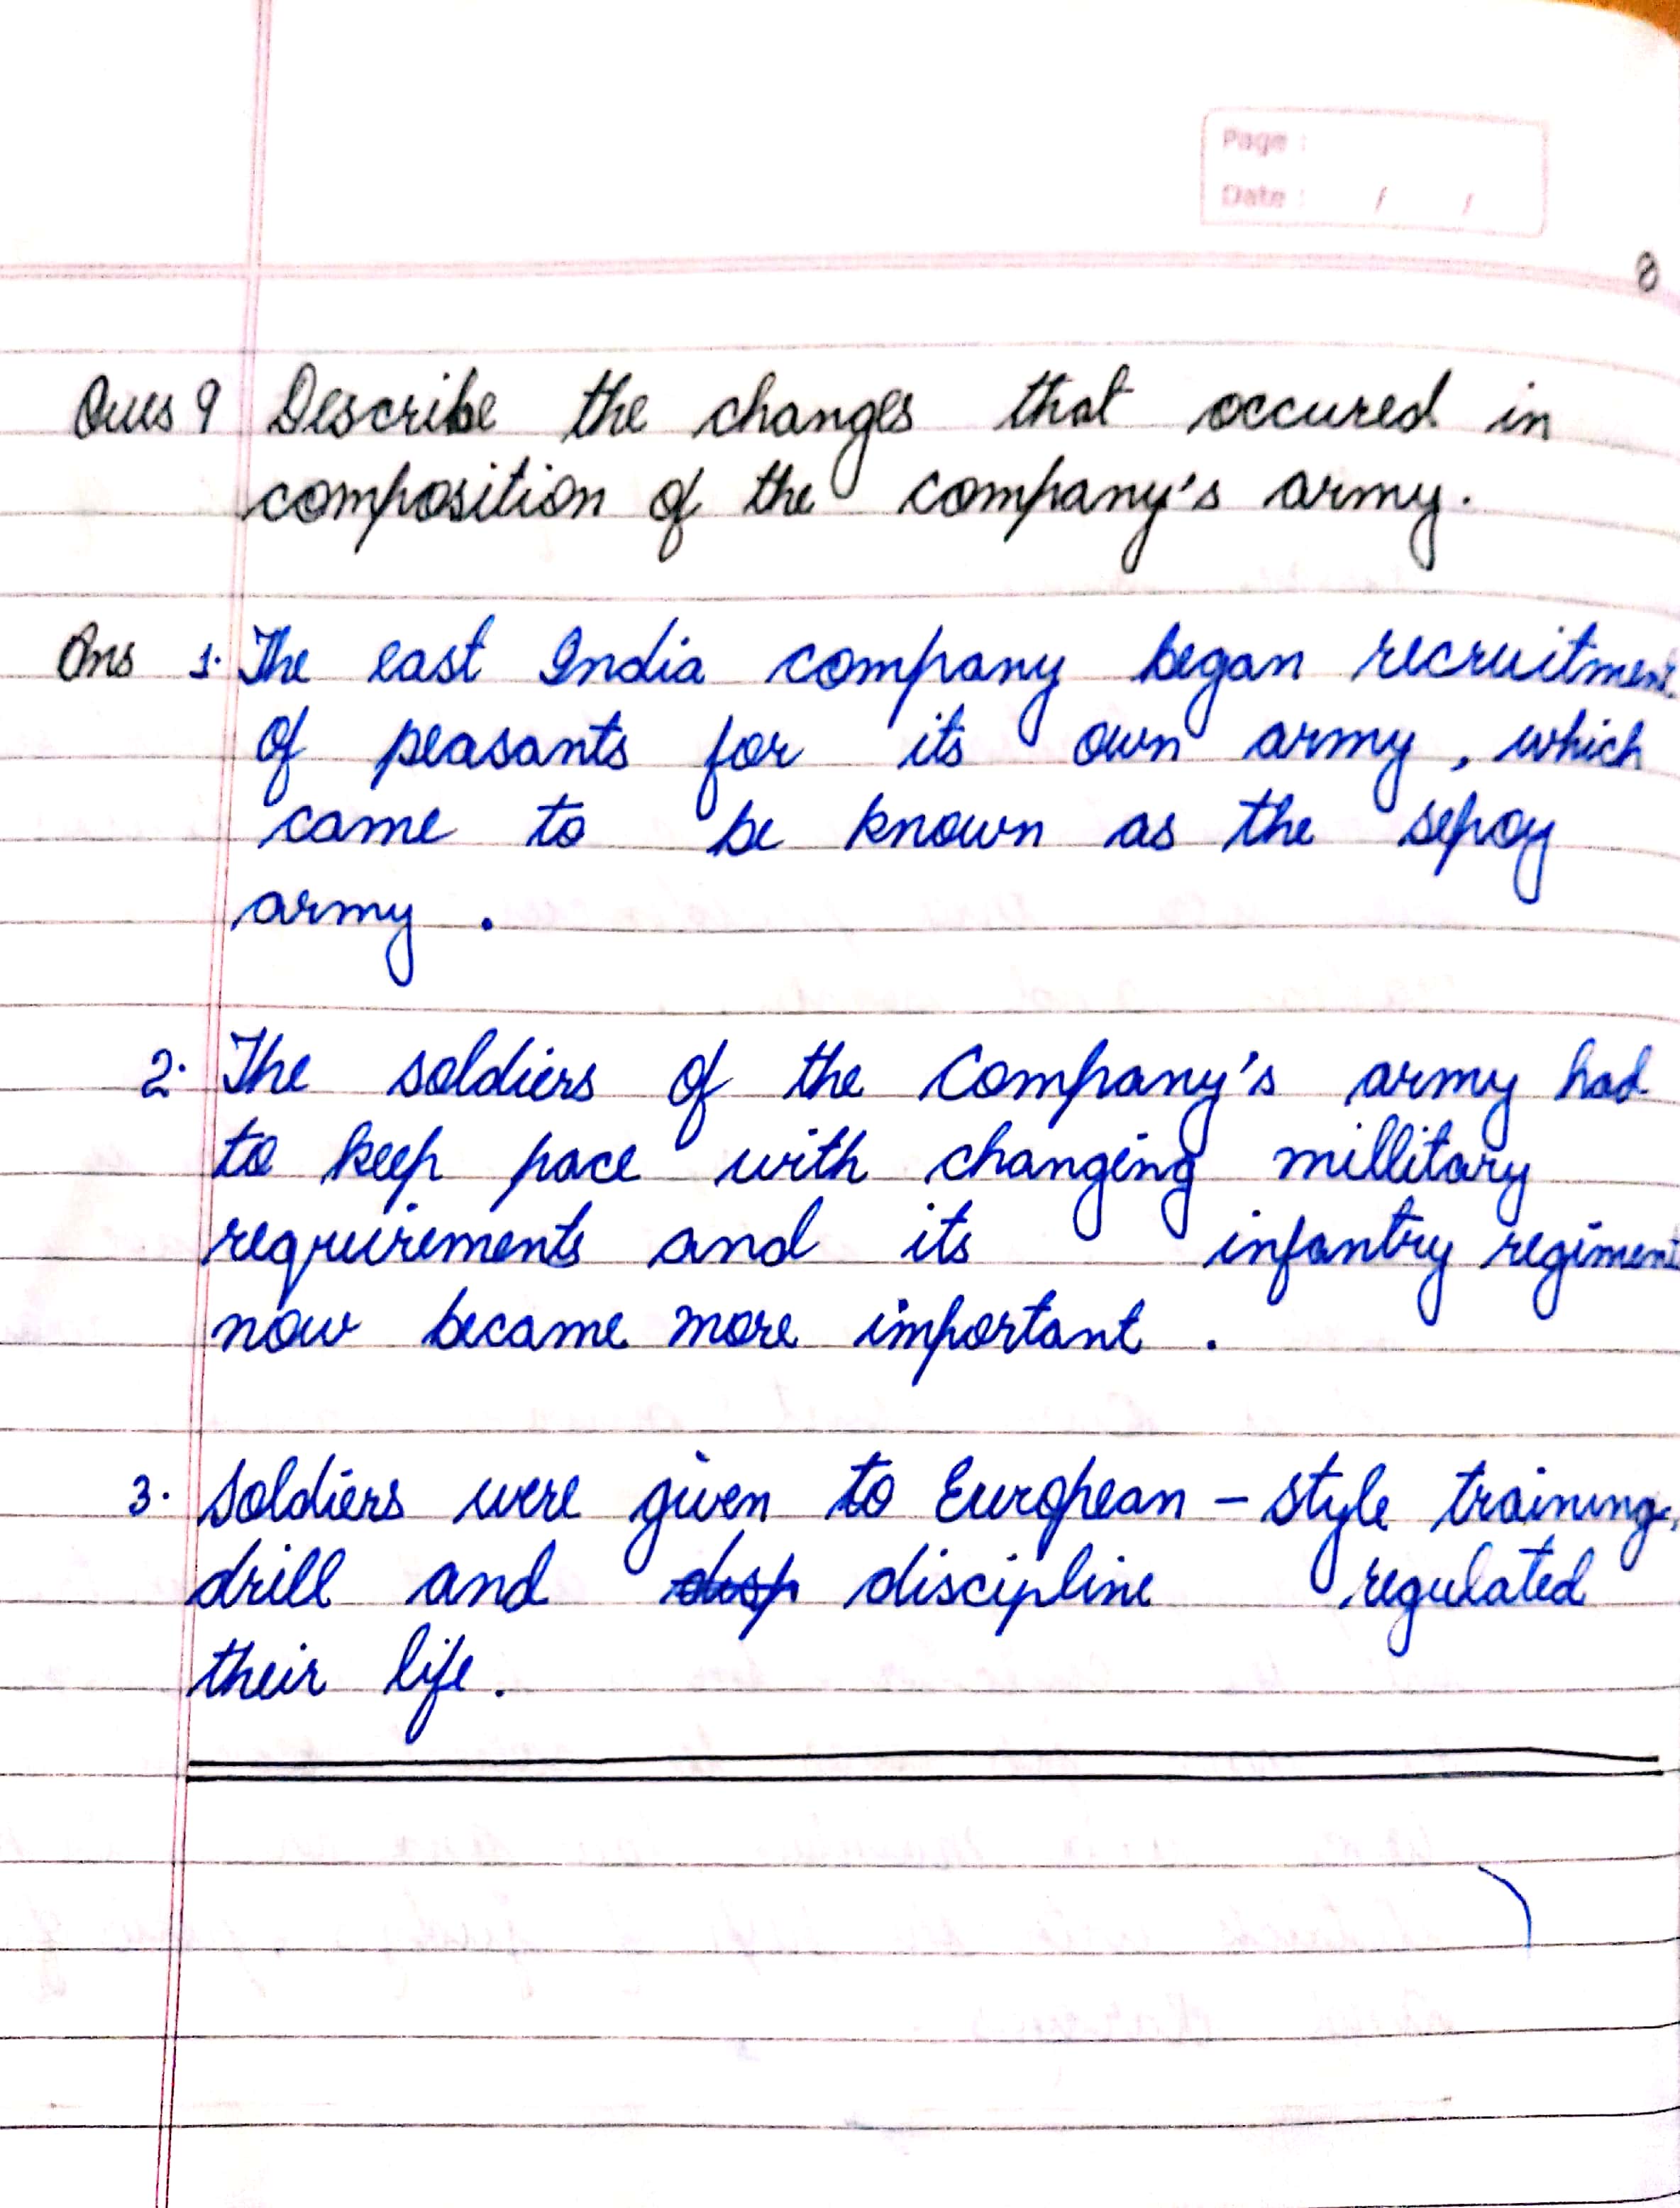 Page :
Date : / /
8
Ques 9 Describe the changes that occured in
composition of the company's army.
Ans 1. The east India company began recruitment
of peasants for its own army, which
came to be known as the sepoy
army .
2. The soldiers of the Company's army had
to keep pace with changing millitary
requirements and its infantry regiment
now became more important .
3. Soldiers were given to European - style training,
drill and disp discipline regulated
their life.